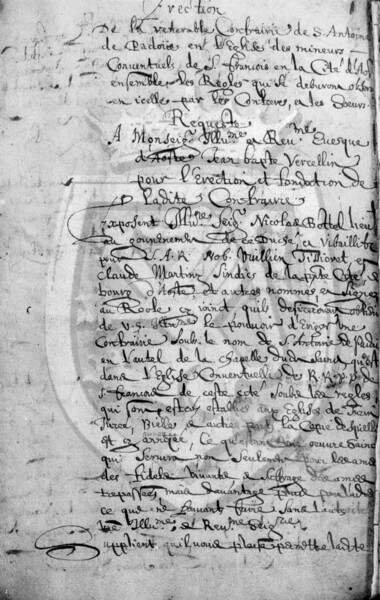 Erection
De la venerable Confrairie de S. Antoine
de Padoüe en l'Eglise des mineurs
Conventuels de St françois en la Cité d'Aos
ensemble les Regles qui se debvront observ
en icelle par les Confreres, et les Soeurs.
Requeste
A Monseigr Illme et Revme Evesque
d'Aoste Jean bapte Vercellin
pour l'Erection et fondation de
ladite Confrairie
Exposent Illme Seigr Nicolas Bottel lieu
au gouvernement de ce Duché, et Vibaillif
pour S. A. R. Nob. Vuillien
Claude Martin Sindics de la pnte Cité, et
bourg d'Aoste, et autres nommés, et signés
au Roole cy joinct, quils desireroient obtenir
de V. S. Illme le pouvoir d'Eriger Une
Confrairie soub le nom de St Antoine de Padoue
en l'autel de la Chapelle dudt sainct qu'est
dans l'Eglise Conventuelle des R. R. P. P. de
St françois de ceste cité soubs les regles
qui sont estees establies aux Eglises de
Bielle et autre part la Copie desquelles
est cy annexée, Ce qu'estant une oeuvre saincte
qui servira non seulement pour les ames
des fideles Vivants, et soffrage des ames
trepassées, mais davantage
ce que ne pouvant faire sans l'autorité
de V. Illme et Revme Seigrie
Supplient quil vous plaise permettre ladte